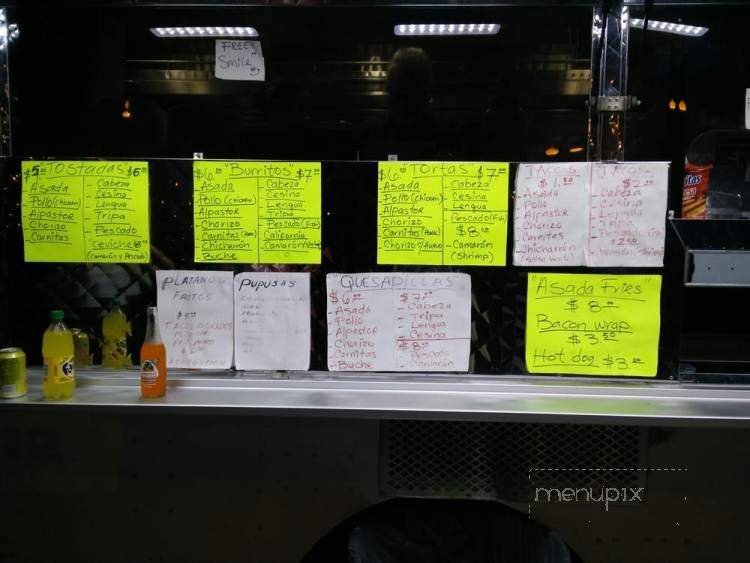 FREE
Smile
$5 "Tostadas" $6
- Asada
- Pollo (chicken)
- Alpastor
- Chorizo
- Carnitas
- Cabeza
- Cesina
- Lengua
- Tripa
- Pescado
Ceviche
(Camaron y Pescado)
$6 "Burritos" $7
- Asada
- Pollo (chicken)
- Alpastor
- Chorizo
- Carnitas (Pork)
- Chicharrón
- Buche
- Cabeza
- Cesina
- Lengua
- Tripa
- Pescado (Fish)
- California
- Camarón
$6 "Tortas" $7
- Asada
- Pollo (chicken)
- Alpastor
- Chorizo
- Carnitas (Pork)
- Chorizo
- Cabeza
- Cesina
- Lengua
Pescado (Fish)
$8
- Camarón
(Shrimp)
TACOS
$1.50
Asada
Pollo
Alpastor
Chorizo
Carnitas
Chicharrón
$2
Cabeza
Cesina
Lengua
Tripa
$2.50
PLATANOS
FRITOS
PUPUSAS
"QUESADILLAS"
$6
- Asada
- Pollo
- Alpastor
- Chorizo
- Carnitas
- Buche
$7
- Cabeza
- Tripa
- Lengua
- Cesina
$8
- Pescado
- Camarón
"Asada Fries"
$8
Bacon wrap
$3.50
Hot dog $3
menupix